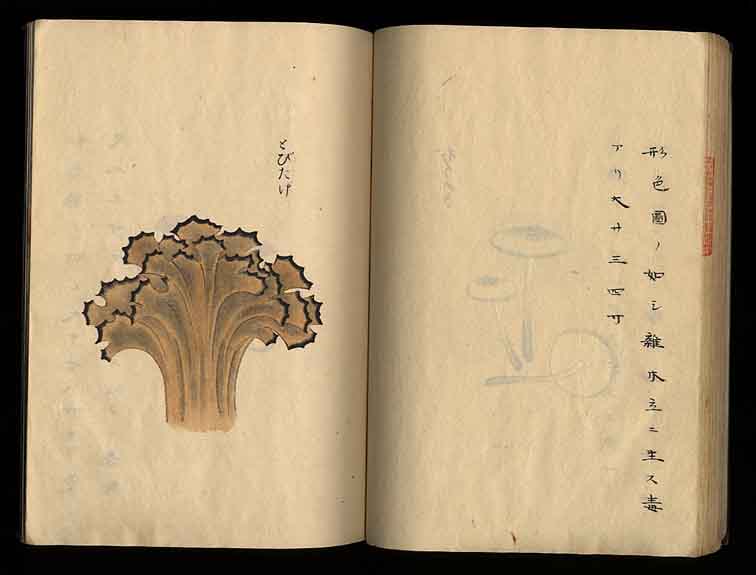 形色圖ノ如シ雜木立ニ生ス毒
アリ大サ三四寸
とびたけ